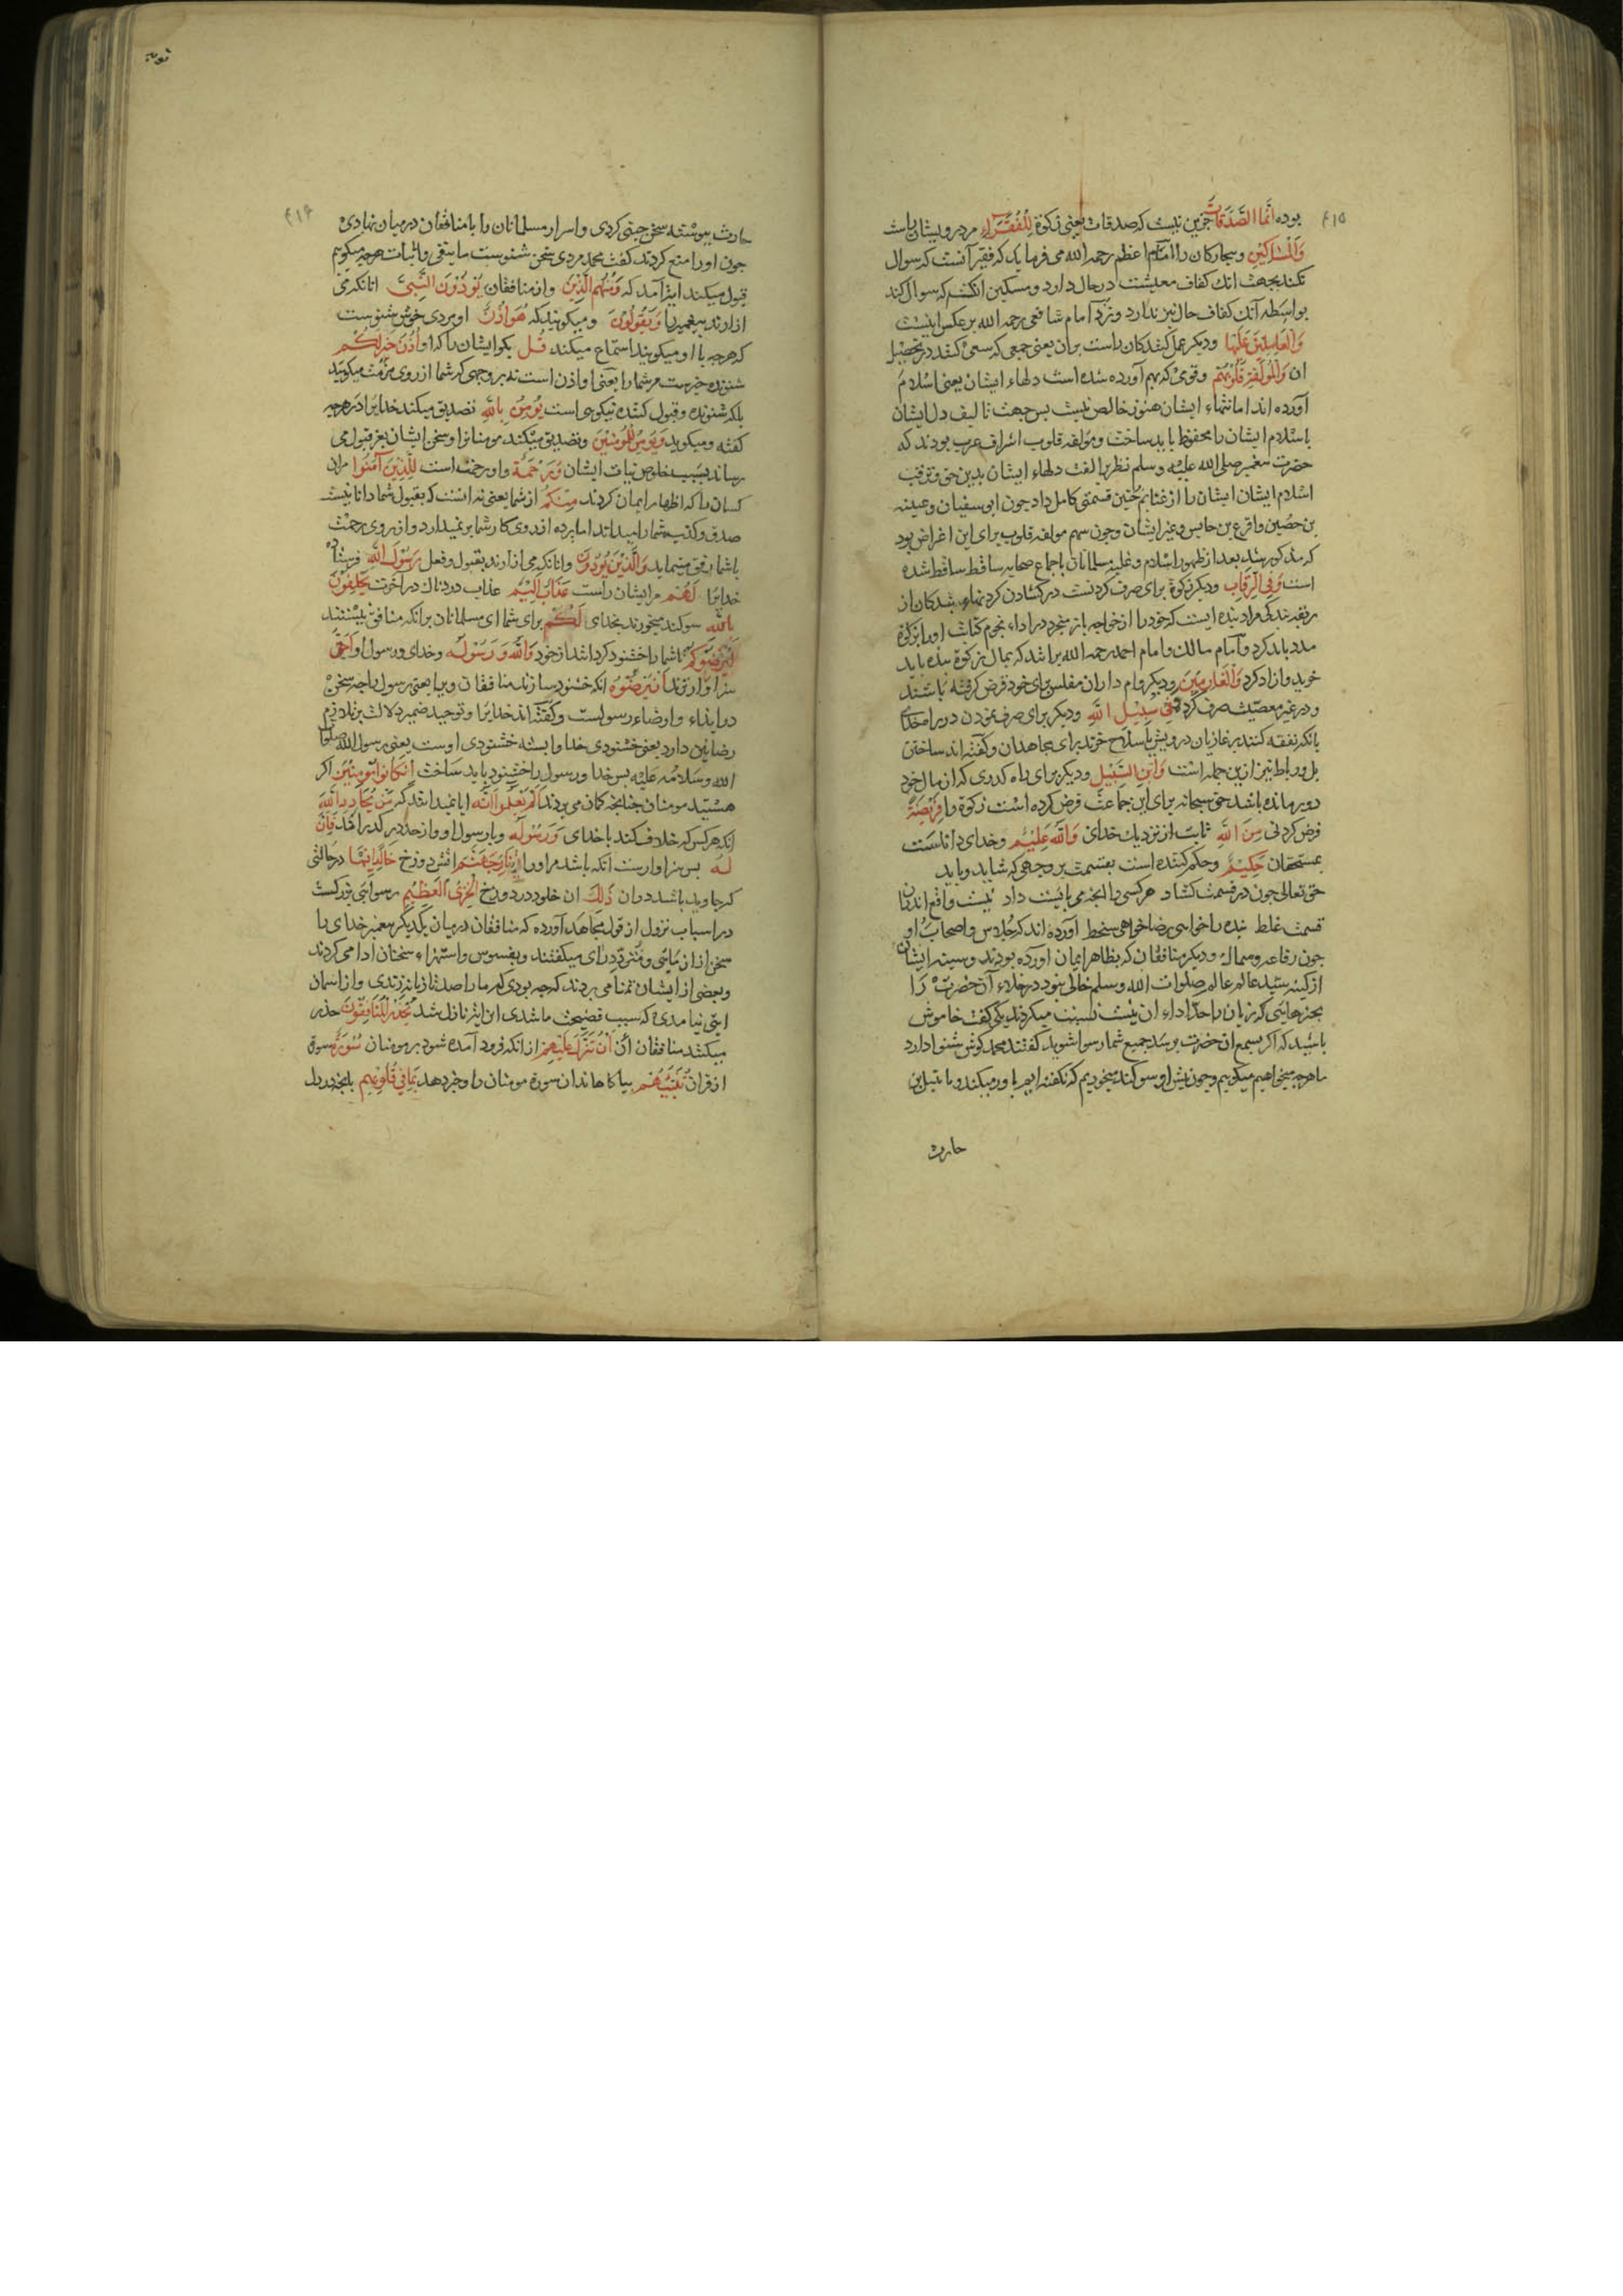 ۴۱۵
بوده انما الصدقات جزین نیست که صدقات یعنی زکوة للفقراء مر درویشان راست
والمساکین و بیچارکان را امام اعظم رحمه الله می فرماید که فقیر آنست که سوال
نکند بجهت انک کفاف معیشت در حال دارد و مسکین انکه سوال کند
بواسطه آنک کفاف حال نیز ندارد و نزد امام شافعی رحمه الله بر عکس اینست
والعاملین علیها و دیکر عمل کنندکان راست بران یعنی جمعی که سعی کنند در تحصیل
ان والمؤلفة قلوبهم و قومی که بهم آورده شده است دلهاء ایشان یعنی اسلام
آورده اند اما نیتهاء ایشان هنوز خالص نیست بس جهت تالیف دل ایشان
باسلام ایشان را محفوظ باید ساخت و مؤلفه قلوب اشراف عرب بودند که
حضرت پیغمبر صلی الله علیه و سلم نظر بر الفت دلهاء ایشان بدین حق و ترقب
اسلام ایشان ایشان را از غنایم حنین قسمتی کامل داد چون ابی سفیان و عیینه
بن حصین و اقرع بن حابس و غیر ایشان و چون سهم مولفه قلوب برای این اغراض بود
که مذکور شد بعد از ظهور اسلام و غلبه مسلمانان باجماع صحابه ساقط شده
است وفی الرقاب و دیکر زکوة برای صرف کردنست در کشادن کردنهاء بندکان از
ربقه بندکی مراد بنده ایست که خود را از خواجه باز میخرد در اداء نجوم کتابت او را بزکوة
مدد باید کرد و امام مالک و امام احمد رحمه الله برانند که بمال زکوة بنده باید
خرید و ازاد کرد والغارمین و دیکر وام داران مفلس برای خود قرض کرفته باشند
و در غیر معصیت صرف کرده وفی سبیل الله و دیکر برای صرف نمودن در راه خدای
بانکه نفقه کنند بر غازیان درویش یا سلاح خرند برای مجاهدان و کفته اند ساختن
بل و رباط نیز ازین جمله است وابن السبیل و دیکر برای راه کذری که از مال خود
دور مانده باشد حق سبحانه برای این جماعت فرض کرده است زکوة را فریضة
فرض کردنی من الله ثابت از نزدیک خدای والله علیم و خدای داناست
بمستحقان حکیم و حکم کننده است بقسمت بر وجهی که شاید و باید
حق تعالی چون در قسمت کشاد هر کسی را انچه می بایست داد نیست واقع اندران
قسمت غلط بنده را خواهی رضا خواهی سخط آورده اند که جلاس و اصحاب او
چون رفاعه و سماک و دیکر منافقان که بظاهر ایمان آورده بودند و سینه ایشان
از کینه سید عالم علیه صلوات الله و سلم خالی نبود در خلاء آن حضرت را
بچیزهایی که زبان را حد اداء ان نیست نسبت میکردند یکی کفت خاموش
باشید که اکر بسمع ان حضرت برسد جمیع شما رسوا شوید کفتند محمد کوش شنوا دارد
ما هرچه میخواهیم میکوییم و چون پیش او سوکند میخوریم که نکفته ایم باور میکند
حارث
توبه
۴۱۶
حارث پیوسته سخن چینی کردی و اسرار مسلمانان را با منافقان در میان نهادی
چون او را منع کردند کفت محمد مردی سخن شنوست ما بنفی و اثبات هرچه میکوییم
قبول میکند ایة آمد که ومنهم الذین و از منافقان یؤذون النبی انانکه می
ازارند پیغمبر را ویقولون و میکویند که هو اذن او مردی خوش شنوست
که هرچه با او میکویند استماع میکند قل بکو ایشان را که او اذن خیر لکم
شنونده خیرست مر شما را یعنی او اذن است نه بر وجهی که شما از روی مذمت میکویید
بلکه شنونده و قبول کننده نیکوی است یؤمن بالله تصدیق میکند خدایرا در هرچه
کفته و میکوید ویؤمن للمؤمنین و تصدیق میکند مومنانرا و سخن ایشان بعز قبول می
رساند بسبب خلوص نیات ایشان ورحمة و او رحمت است للذین آمنوا مران
کسان را که اظهار ایمان کردند منکم از شما یعنی نه انست که بقبول شما دانا نیست
صدق و کذب شما را میداند اما پرده از روی کار شما بر نمیدارد و از روی رحمت
با شما رفق مینماید والذین یؤذون و انانکه می ازارند بقبول و فعل رسول الله فرستاده
خدایرا لهم مر ایشان راست عذاب الیم عذاب دردناک در آخرت یحلفون
بالله سوکند میخورند بخدای لکم برای شما ای مسلمانان برانکه منافق نیستند
لیرضوکم تا شما را خشنود کردانند از خود والله ورسوله و خدای و رسول او احق
سزاوارترند ان یرضوه انکه خشنود سازند منافقان ویرا یعنی رسول را چه سخن
در ایذاء و ارضاء رسولست و کفته اند خدایرا و توحید ضمیر دلالت بر تلازم
رضایین دارد یعنی خشنودی خدا وابسته خشنودی اوست یعنی رسول الله صلوات
الله و سلامه علیه بس خدا و رسول را خشنود باید ساخت ان کانوا مؤمنین اکر
هستید مومنان چنانچه کمان می برند الم یعلموا انه ایا نمیدانند که من یحادد الله
انکه هر کس که خلاف کند با خدای ورسوله و با رسول او و از حد در کذراند فان
له بس سزاوارست انکه باشد مر او را نار جهنم اتش دوزخ خالدا فیها در حالتی
که جاوید باشد دران ذلک ان خلود در دوزخ الخزی العظیم رسوایی بزرکست
در اسباب نزول از قول مجاهد آورده که منافقان در میان یکدیکر پیغمبر خدای را
سخن
و بعضی از ایشان تمنا می بردند که چه بودی که ما را صد تازیانه زدندی و از اسمان
ایتی نیامدی که سبب فضیحت ما شدی این ایة نازل شد یحذر المنافقون حذر
میکنند منافقان ان تنزل علیهم از انکه فرود آمده شود بر مومنان سورة سورة
از قران تنبئهم بیاکاهاند ان سورة مومنان را و خبر دهد بما فی قلوبهم بانچه در دل